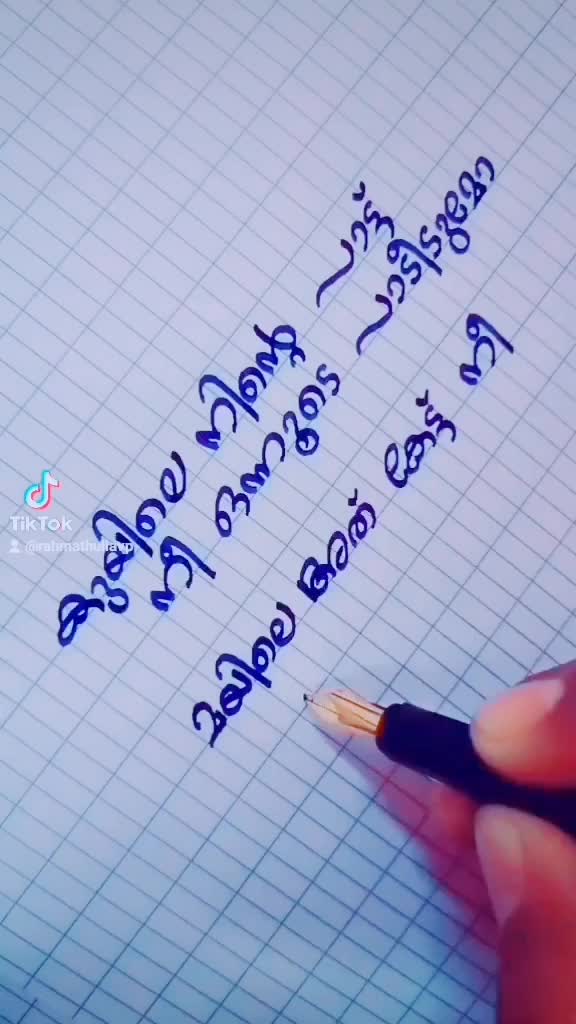 കുയിലെ നിന്റെ പാട്ട്
നീ ഒന്നൂടെ പാടീടുമോ
മയിലെ അത് കേട്ട് നീ
TikTok
@rahmathullavp